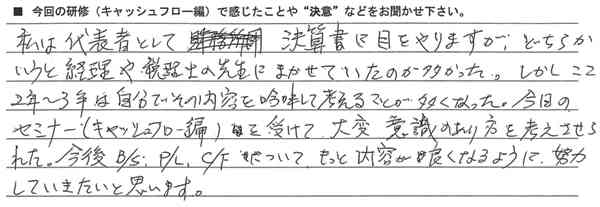 ■ 今回の研修（キャッシュフロー編）で感じたことや“決意”などをお聞かせ下さい。
私は代表者として 決算書に目をやりますが、どちらか
いうと経理や税理士の先生にまかせていたのが多かった。しかしここ
2年〜3年は自分でその内容を吟味して考えることが多くなった。今日の
セミナー(キャッシュフロー編)を受けて、大変 意識のあり方を考えさせら
れた。今後 B/S、P/L、C/F について、もっと内容が良くなるように、努力
していきたいと思います。